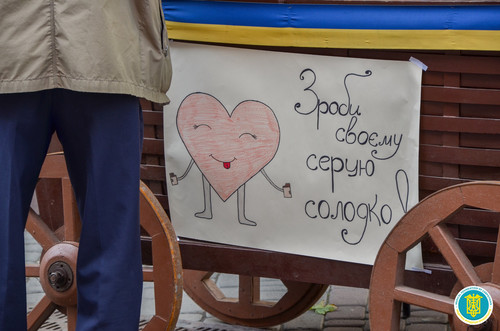 Зроби
своєму
серцю
солодко!